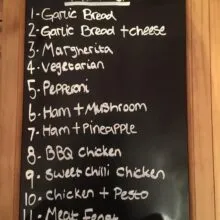 1-Garlic Bread
2-Garlic Bread + cheese
3- Margherita
4- Vegetarian
5- Pepperoni
6- Ham + Mushroom
7- Ham + Pineapple
8- BBQ Chicken
9- Sweet Chilli Chicken
10- Chicken + Pesto
11- Meat Feast